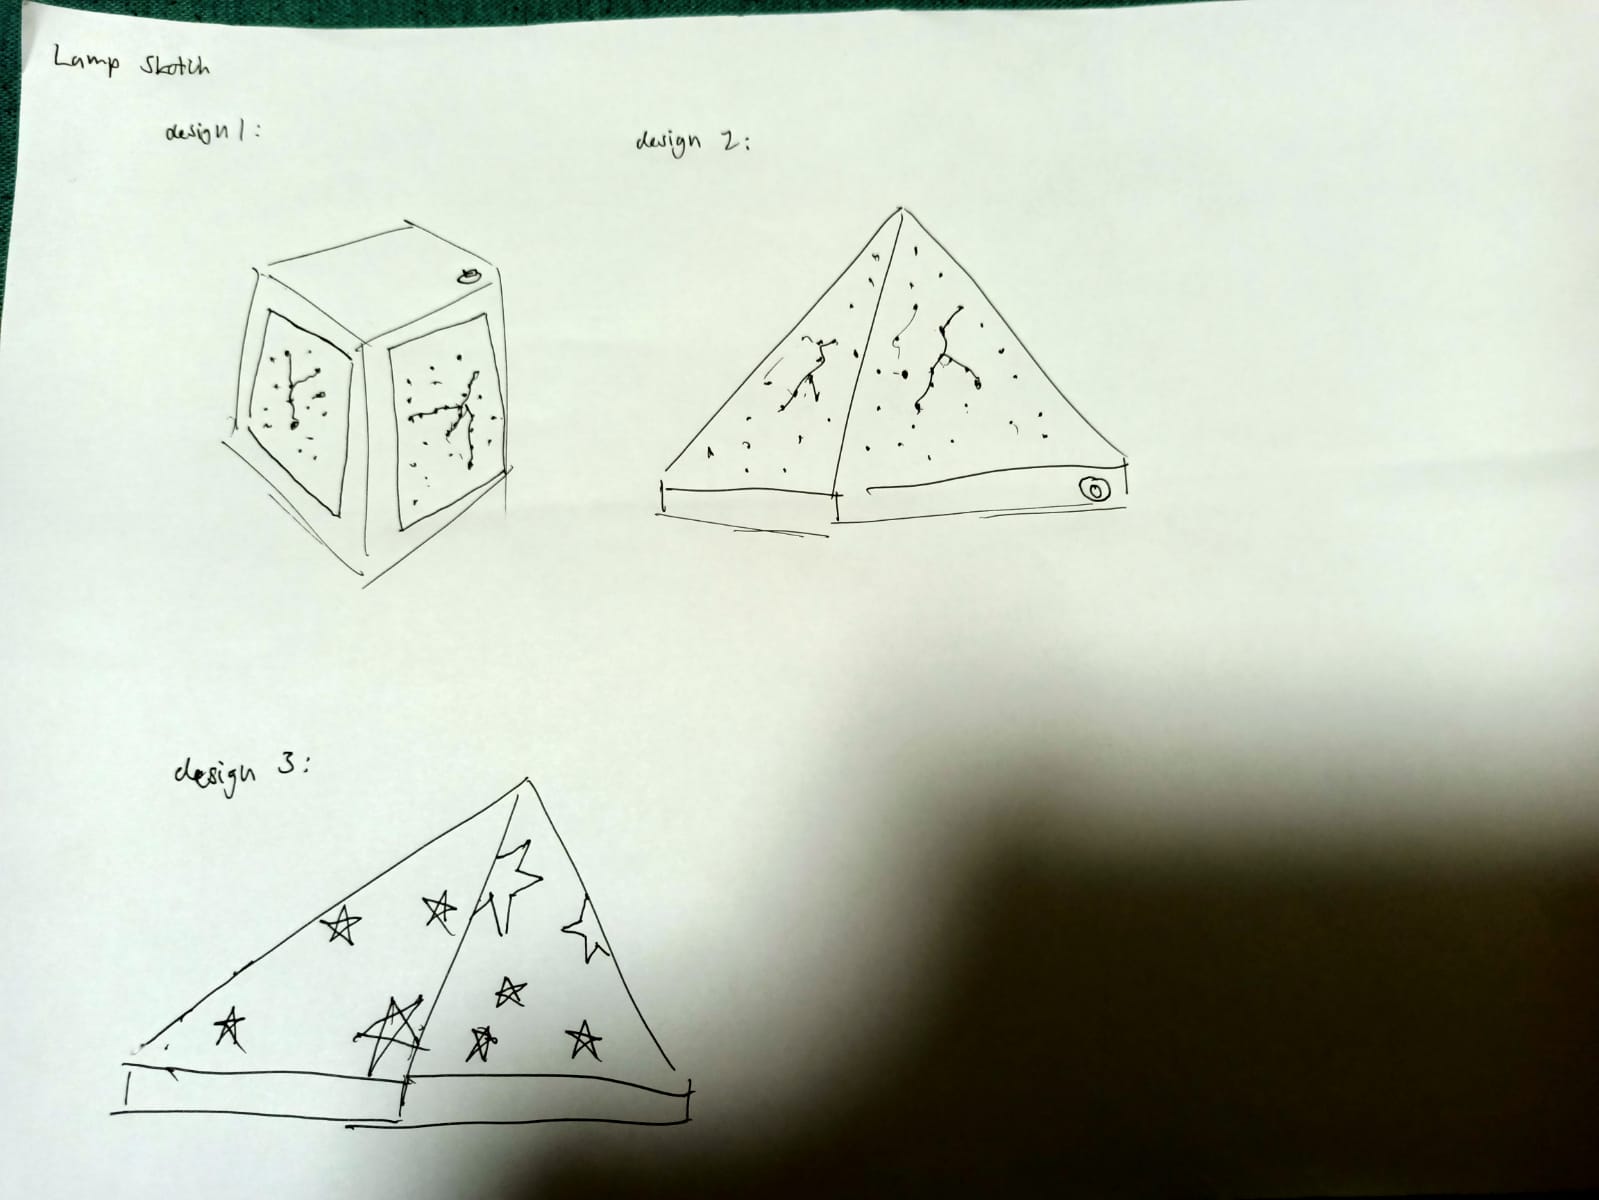 Lamp Sketch
design 1:
design 2:
design 3: